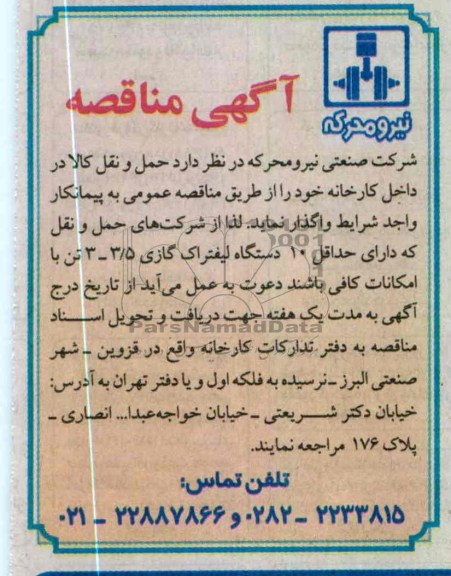 نیرومحرکه
آگهی مناقصه
شرکت صنعتی نیرومحرکه در نظر دارد حمل و نقل کالا در
داخل کارخانه خود را از طریق مناقصه عمومی به پیمانکار
واجد شرایط واگذار نماید. لذا از شرکت‌های حمل و نقل
که دارای حداقل ۱۰ دستگاه لیفتراک گازی ۳/۵ ـ ۳ تن با
امکانات کافی باشند دعوت به عمل می‌آید از تاریخ درج
آگهی به مدت یک هفته جهت دریافت و تحویل اسناد
ParsNamadData
مناقصه به دفتر تدارکات کارخانه واقع در قزوین ـ شهر
صنعتی البرز ـ نرسیده به فلکه اول و یا دفتر تهران به آدرس:
خیابان دکتر شریعتی ـ خیابان خواجه‌عبدا... انصاری ـ
پلاک ۱۷۶ مراجعه نمایند.
تلفن تماس:
۲۲۳۳۸۱۵ ـ ۰۲۸۲ و ۲۲۸۸۷۸۶۶ ـ ۰۲۱